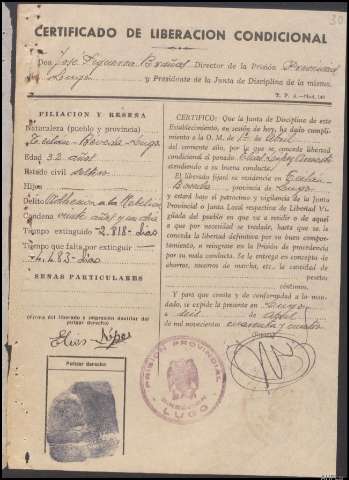 30
CERTIFICADO DE LIBERACION CONDICIONAL
Don Jose Figueroa Director de la Prisión Provincial
de Lugo y Presidente de la Junta de Disciplina de la misma.
T. P. A.—Mod. 141
FILIACION Y RESEÑA
Naturaleza (pueblo y provincia)
Lugo
Edad 32 años
Estado civil soltero
Hijos
Delito a la Rebelión
Condena veinte años y un día
Tiempo extinguido 2.818- días
Tiempo que falta por extinguir
4.483- días
SEÑAS PARTICULARES
(Firma del liberado e impresión dactilar del
pulgar derecho)
Pulgar derecho
CERTIFICO: Que la Junta de Disciplina de este
Establecimiento, en sesión de hoy, ha dado cumpli-
miento a la O. M. de 1º de Abril
del corriente año, por la que se concede libertad
condicional al penado
atendiendo a su buena conducta;
El liberado fijará su residencia en
, provincia de Lugo
y estará bajo el patrocinio y vigilancia de la Junta
Provincial o Junta Local respectiva de Libertad Vi-
gilada del pueblo en que va a residir o de aquel
a que por necesidad se traslade, hasta que se le
conceda la libertad definitiva por su buen compor-
tamiento, o reingrese en la Prisión de procedencia
por su mala conducta. Se le entrega en concepto de
ahorros, socorros de marcha, etc., la cantidad de
pesetas
céntimos.
Y para que conste y de conformidad a lo man-
dado, se expide la presente en Lugo
a seis de Abril
de mil novecientos cuarenta y cuatro
PRISIÓN PROVINCIAL
DIRECCION
LUGO